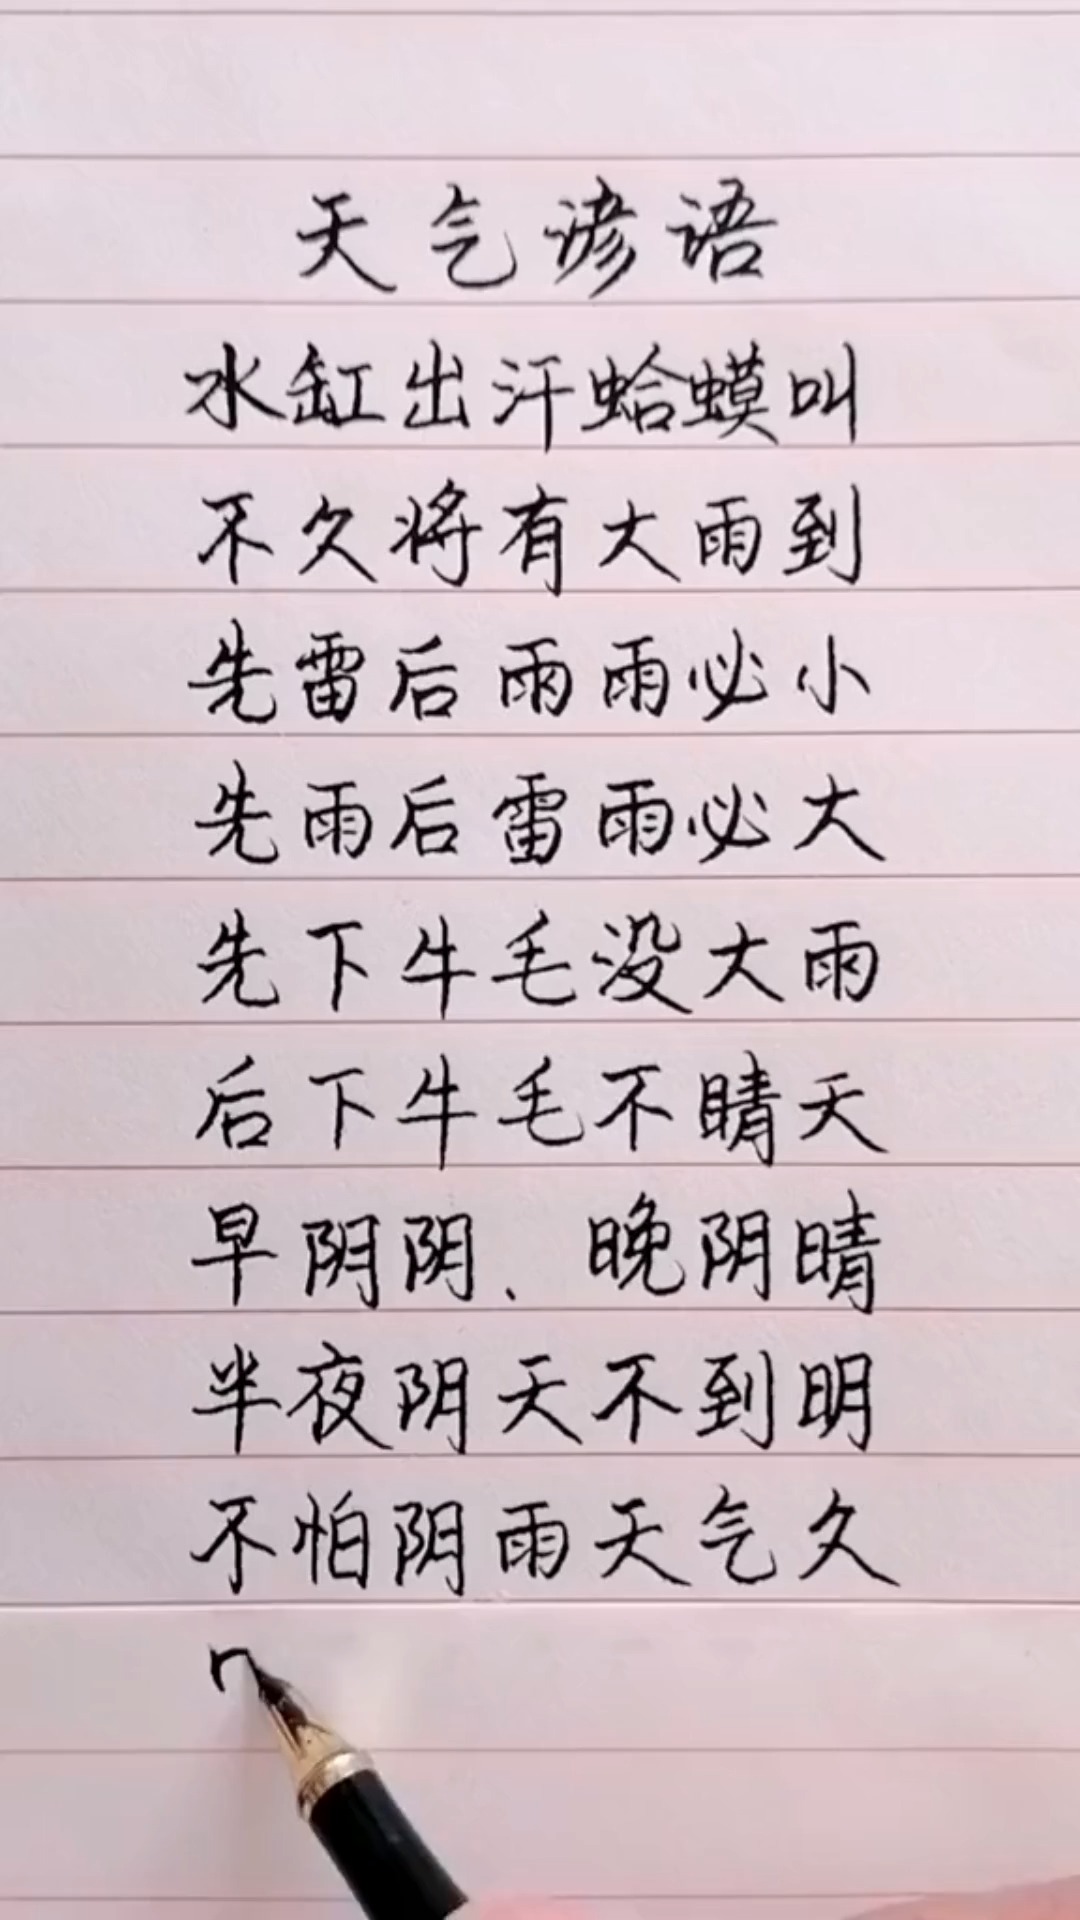 天气谚语
水缸出汗蛤蟆叫
不久将有大雨到
先雷后雨雨必小
先雨后雷雨必大
先下牛毛没大雨
后下牛毛不晴天
早阴阴、晚阴晴
半夜阴天不到明
不怕阴雨天气久